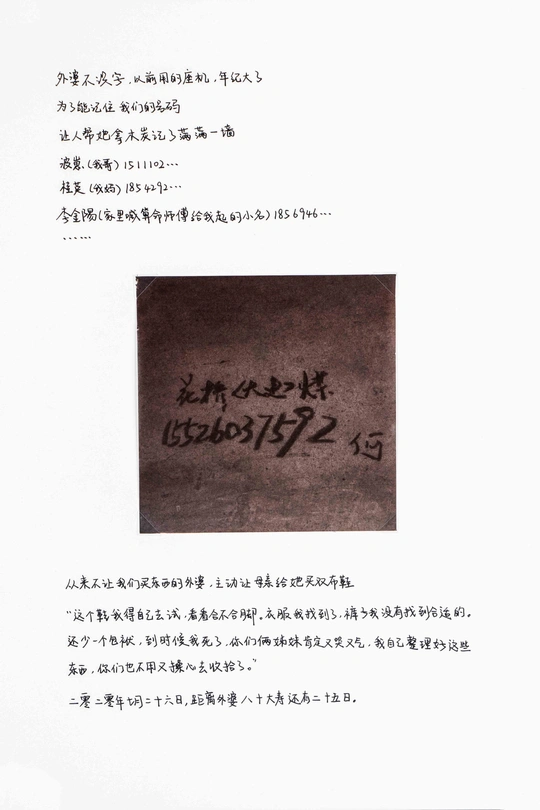 外婆不识字，以前用的座机，年纪大了
为了能记住我们的号码
让人帮她拿木炭记了满满一墙
波崽（我哥）1511102…
桂英（我妈）1854292…
李金陽（家里喊算命师傅给我起的小名）1856946…
……
花桥 煤
15526037592 何
从来不让我们买东西的外婆，主动让母亲给她买双布鞋
“这个鞋我得自己去试，看看合不合脚。衣服我找到了，裤子我没有找到合适的。
还少一个包袱，到时候我死了，你们俩姊妹肯定又哭又乞，我自己整理好这些
东西，你们也不用又操心去收拾了。”
二零二零年七月二十六日，距离外婆八十大寿还有二十五日。